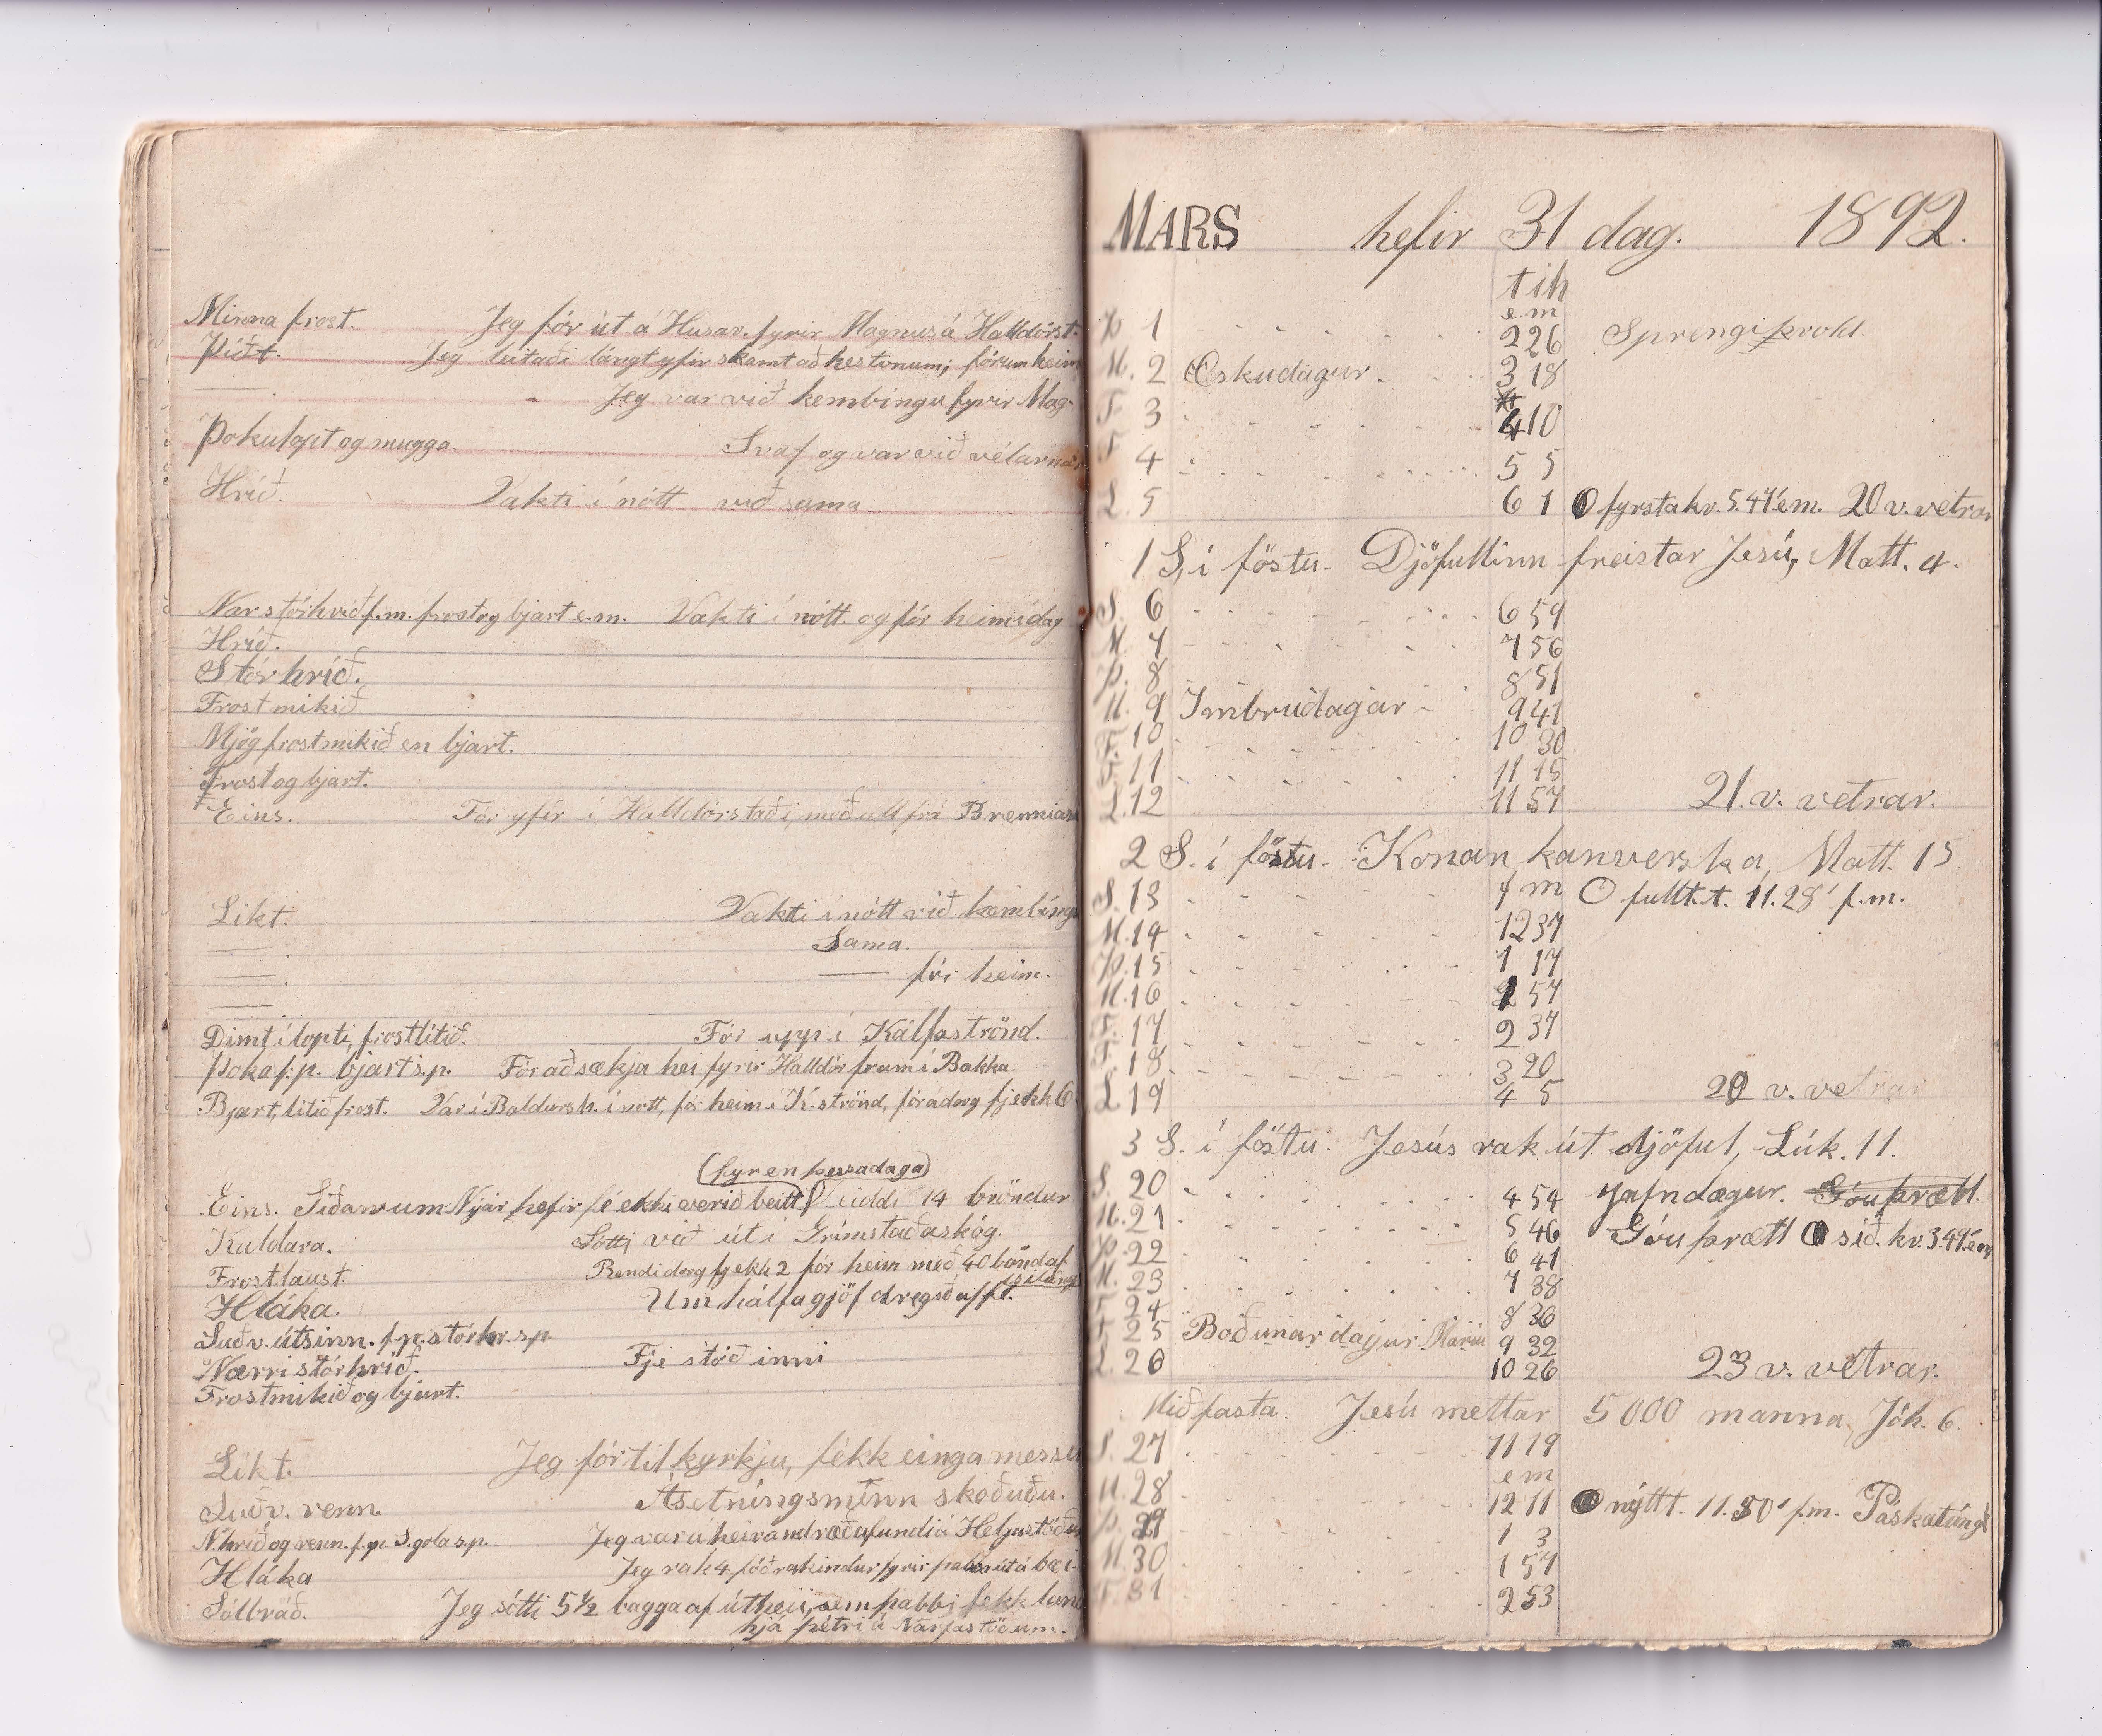 Minna frost. Jeg fór út á Húsav. fyrir Magnús á Halldórst.
Þíðt. Jeg leitaði lángt yfir skamt að hestonum; fórum heim
— Jeg var við kembíngu fyrir Mag-
Þokulopt og mugga. Svaf og var við vélarnar
Hríð. Vakti í nótt við sama
Nær stórhríð f.m. frost og bjart e.m. Vakti í nótt og fór heim í dag
Hríð.
Stórhríð.
Frostmikið
Mjög frostmikið en bjart.
Frost og bjart.
Eins. Fór yfir í Halldórstaði, með ull frá Brenniás
Líkt. Vakti í nótt við kembíng
— . Sama.
— . — fór heim.
—
Dimt í lopti, frostlitið. Fór upp í Kálfaströnd.
Þoka f.p. bjart s.p. Fór að sækja hei fyrir Halldór fram í Bakka.
Bjart, litið frost. Var í Baldursh. í nott, fór heim í K.strönd, fór á dorg fjekk 6
(fyr en þessa daga)
Eins. Síðan um Nýár hefir fé ekki verið beitt riddi 14 bröndur
Kuldara. Sótti við út í Grímstaðaskóg.
Frostlaust. Rendi dorg fjekk 2 fór heim með 40 bönd af
silúng
Hláka. Um hálfa gjöf dregið af fé.
Suðv. útsinn. f.p. stórhr. s.p.
Nærri stórhríð. Fje stóð inni
Frostmikið og bjart.
Líkt. Jeg fór til kyrkju, fékk einga messu
Suðv. renn. Ásetníngsmenn skoðuðu.
N.hríð og renn. f.p. S.gola s.p. Jeg var á heivandræðafundi á Helgastöðum
Hláka Jeg rak 4 fóðrakindur fyrir pabba út á bæi-
Sólbráð. Jeg sótti 5 1/2 bagga af útheii, sem pabbi fekk lan
hjá Pétri á Narfastöðum.
MARS hefir 31 dag. 1892.
t ih
e m
Þ 1 2 26 Sprengikvöld
M. 2 Öskudagur. 3 18
F. 3 4 10
F 4 5 5
L. 5 6 1 fyrsta kv. 5.47' em. 20 v. vetrar
1 S. í föstu. Djöfullinn freistar Jesú, Matt. 4.
S. 6 6 59
M 7 7 56
Þ. 8 8 51
M. 9 Imbrudagar 9 41
F. 10 10 30
F. 11 11 15
L. 12 11 57 21. v. vetrar.
2 S. í föstu. Konan kanverska, Matt. 15
S. 13 f m fullt. t. 11.28' f.m.
M. 14 12 37
Þ. 15 1 17
M. 16 1 57
F. 17 2 37
F 18 3 20
L 19 4 5 22 v. vetrar
3 S. í föstu. Jesús rak út djöful, Lúk. 11.
S. 20 4 54 Jafndægur. Góuþræll.
M. 21 5 46 Góuþræll síð. kv. 3.47' em
Þ. 22 6 41
M. 23 7 38
F 24 8 36
F 25 Boðunar dagur Maríu 9 32
L. 26 10 26 23 v. vetrar.
Miðfasta. Jesú mettar 5000 manna, Jóh. 6.
S. 27 11 19
e m
M. 28 12 11 nýtt t. 11.50' f.m. Páskatúngl
Þ. 29 1 3
M. 30 1 57
F 31 2 53